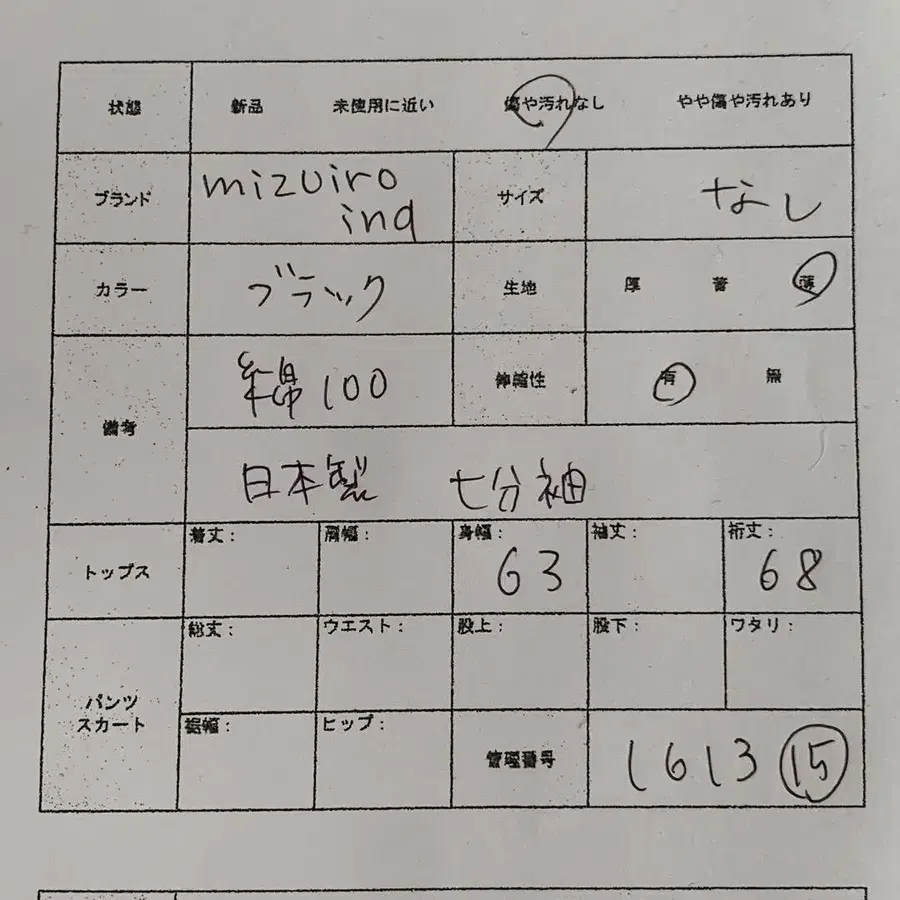 状態 新品 未使用に近い 傷や汚れなし やや傷や汚れあり
ブランド mizuiro ind サイズ なし
カラー ブラック 生地 厚 普 薄
備考 綿100 伸縮性 有 無
日本製 七分袖
トップス 着丈: 肩幅: 身幅: 63 袖丈: 裄丈: 68
パンツ スカート 総丈: ウエスト: 股上: 股下: ワタリ:
裾幅: ヒップ: 管理番号 1613 15